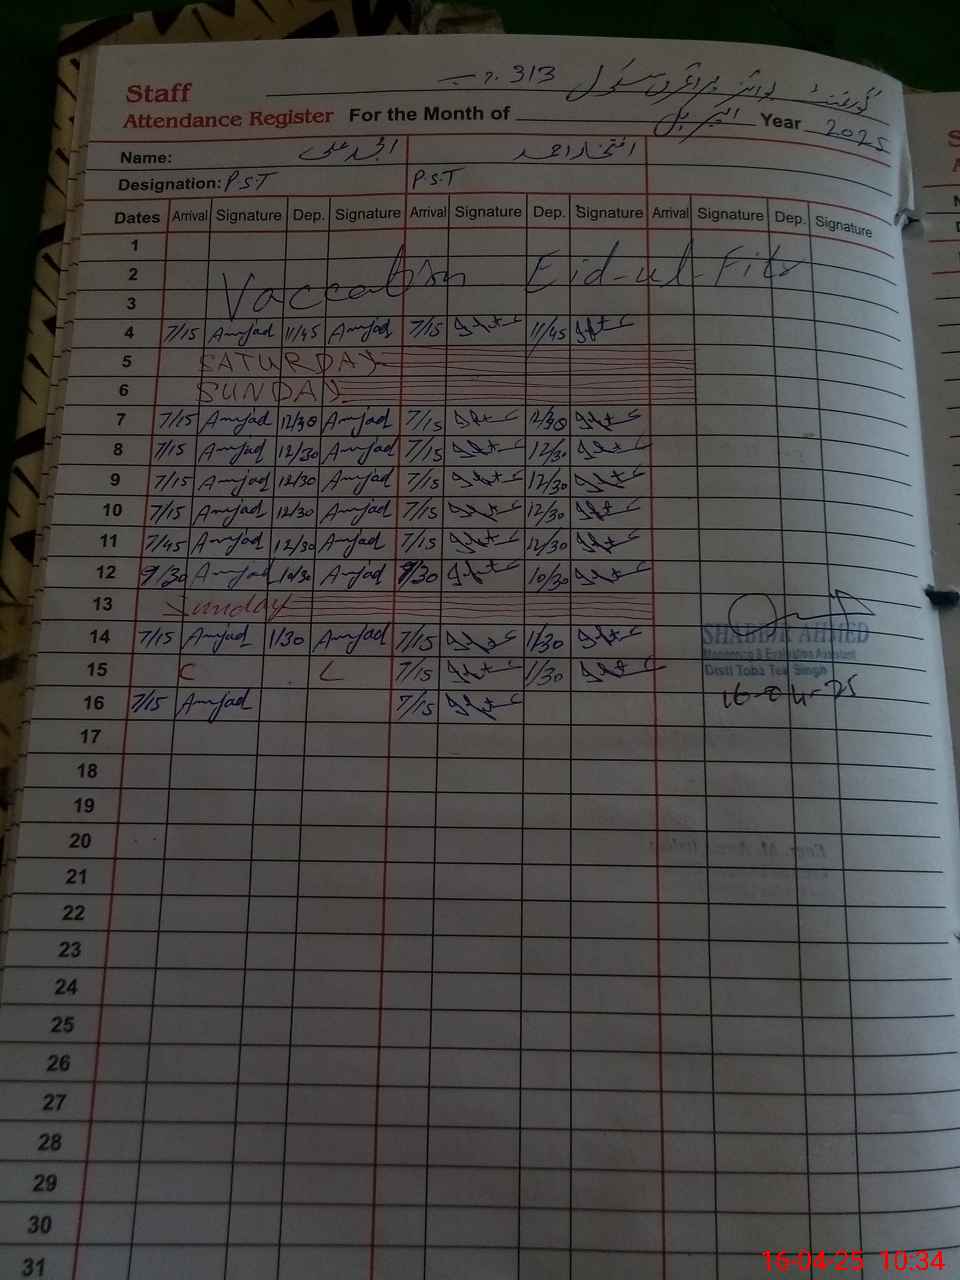 گورنمنٹ بوائز پرائمری سکول 313 ج ب
Staff
Attendance Register For the Month of اپریل Year 2025
Name: امجد علی افتخار احمد
Designation: P.S.T P.S.T
Dates Arrival Signature Dep. Signature Arrival Signature Dep. Signature Arrival Signature Dep. Signature
1
2 Vaccation Eid-ul-Fitr
3
4 7/15 Amjad 11/45 Amjad 7/15 11/45
5 SATURDAY
6 SUNDAY
7 7/15 Amjad 12/30 Amjad 7/15 12/30
8 7/15 Amjad 12/30 Amjad 7/15 12/30
9 7/15 Amjad 12/30 Amjad 7/15 12/30
10 7/15 Amjad 12/30 Amjad 7/15 12/30
11 7/45 Amjad 12/30 Amjad 7/15 12/30
12 9/30 Amjad 10/30 Amjad 9/30 10/30
13 Sunday
14 7/15 Amjad 1/30 Amjad 7/15 1/30
SHABBIR AHMED
Monitoring & Evaluation Assistant
15 C L 7/15 1/30
Distt Toba Tek Singh
16 7/15 Amjad 7/15
16-04-25
17
18
19
20
21
22
23
24
25
26
27
28
29
30
31
16-04-25 10:34